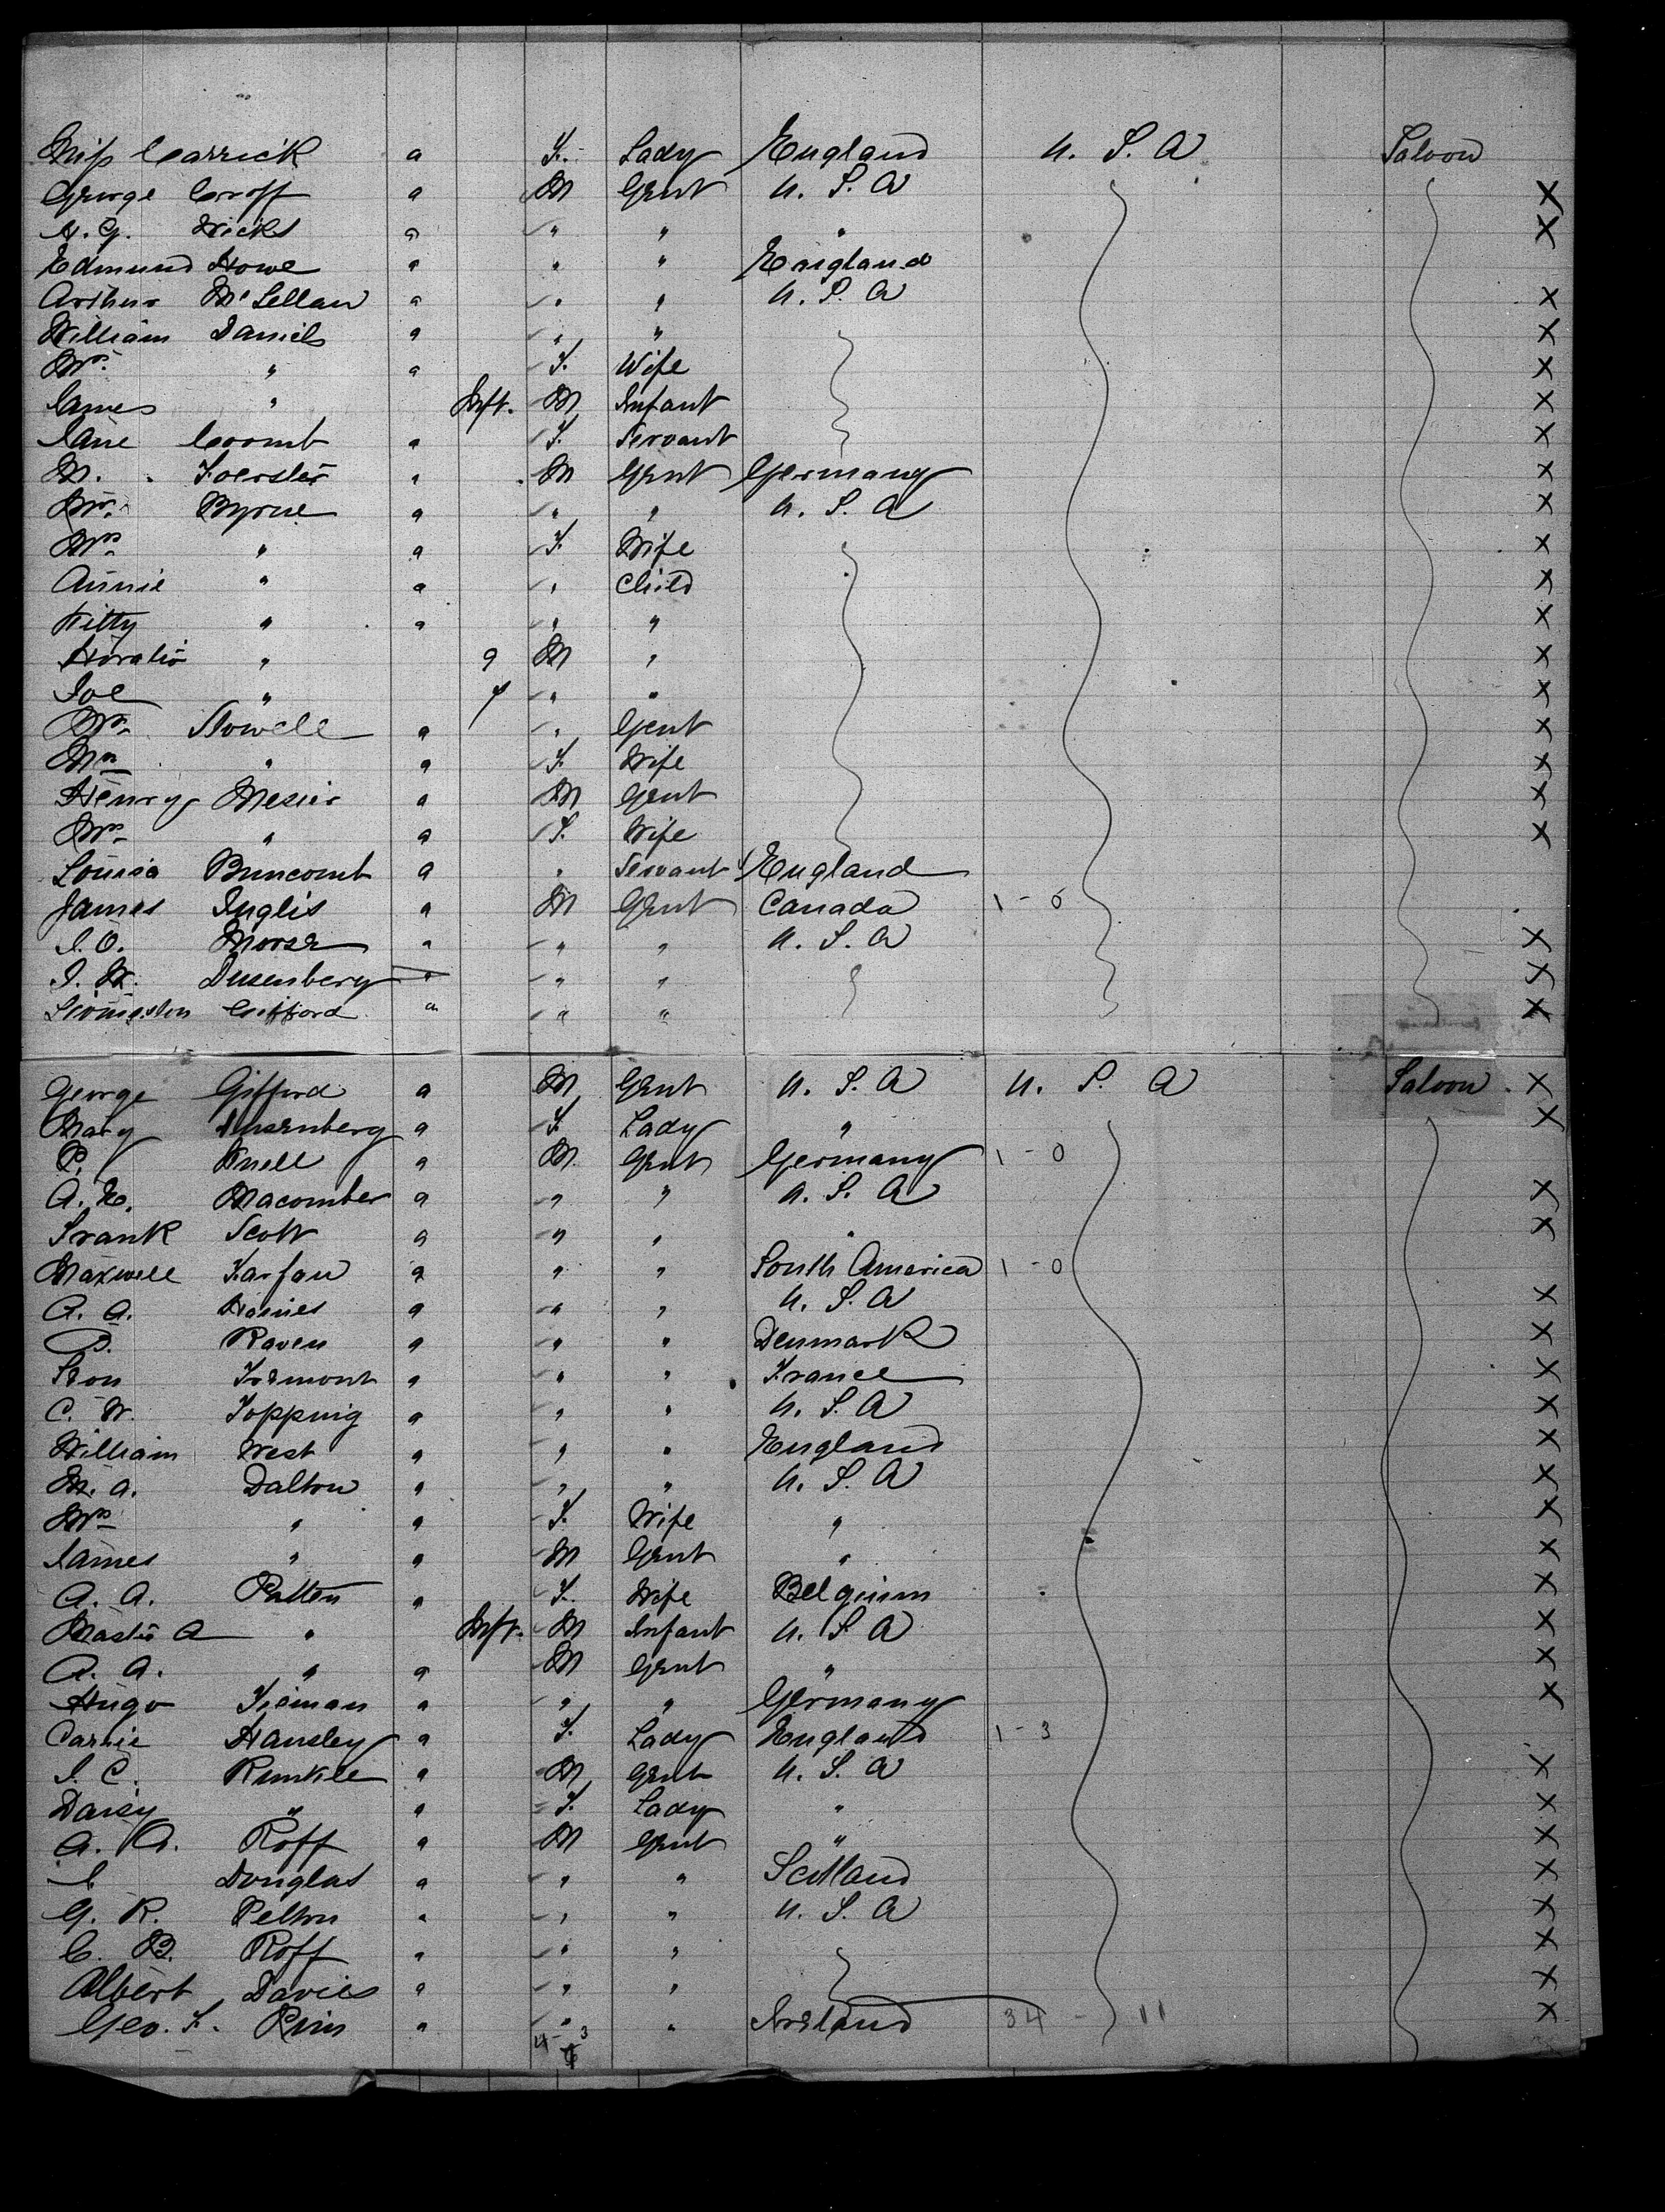 Miss Carrick a F. Lady England U. S. A Saloon
George Croff a M Gent U. S. A X
A. G. Wicks a " " " X
Edmund Howe a " " England
Arthur McLellan a " " U. S. A X
William Daniels a " " X
Mrs. " a F. Wife X
James " Inft. M Infant X
Jane Coomb a F. Servant X
M. Foerster a M Gent Germany X
Mr. Byrne a " " U. S. A X
Mrs " a F. Wife " X
Annie " a " Child X
Kitty " a " " X
Horatio " 9 M " X
Joe " " " X
Mr. Stowell a " Gent X
Mrs " a F. Wife X
Henry Mesier a M Gent X
Mrs " a F. Wife X
Louisa Buncomb a " Servant England
James Inglis a M Gent Canada 1 - 0
J. O. Morse a " " U. S. A X
J. W. Dusenberg a " " X
Livingston Gifford a " " X
George Gifford a M Gent U. S. A U. S. A Saloon X
Mary Dusenberg a F. Lady " X
P. Knell a M Gent Germany 1 - 0
A. Macomber a " " U. S. A X
Frank Scott a " " " X
Maxwell Farfan a " " South America 1 - 0
A. A. Haines a " " U. S. A X
P. Raven a " " Denmark X
Leon Fremont a " " France X
C. W. Topping a " " U. S. A X
William West a " " England X
M. A. Dalton a " " U. S. A X
Mrs " a F. Wife " X
James " a M Gent " X
A. A. Patten a F. Wife Belgium X
Master A " Inft. M Infant U. S. A X
A. A. " a M Gent " X
Hugo Fieman a " " Germany X
Carrie Hansley a F. Lady England 1 - 3
J. C. Runkle a M Gent U. S. A X
Daisy " a F. Lady " X
A. A. Roff a M Gent " X
Douglas a " " Scotland X
G. R. Pelton a " " U. S. A X
C. B. Roff a " " X
Albert Davies a " " X
Geo. F. Pim a " " Ireland 34 - 11 X
4 - 3